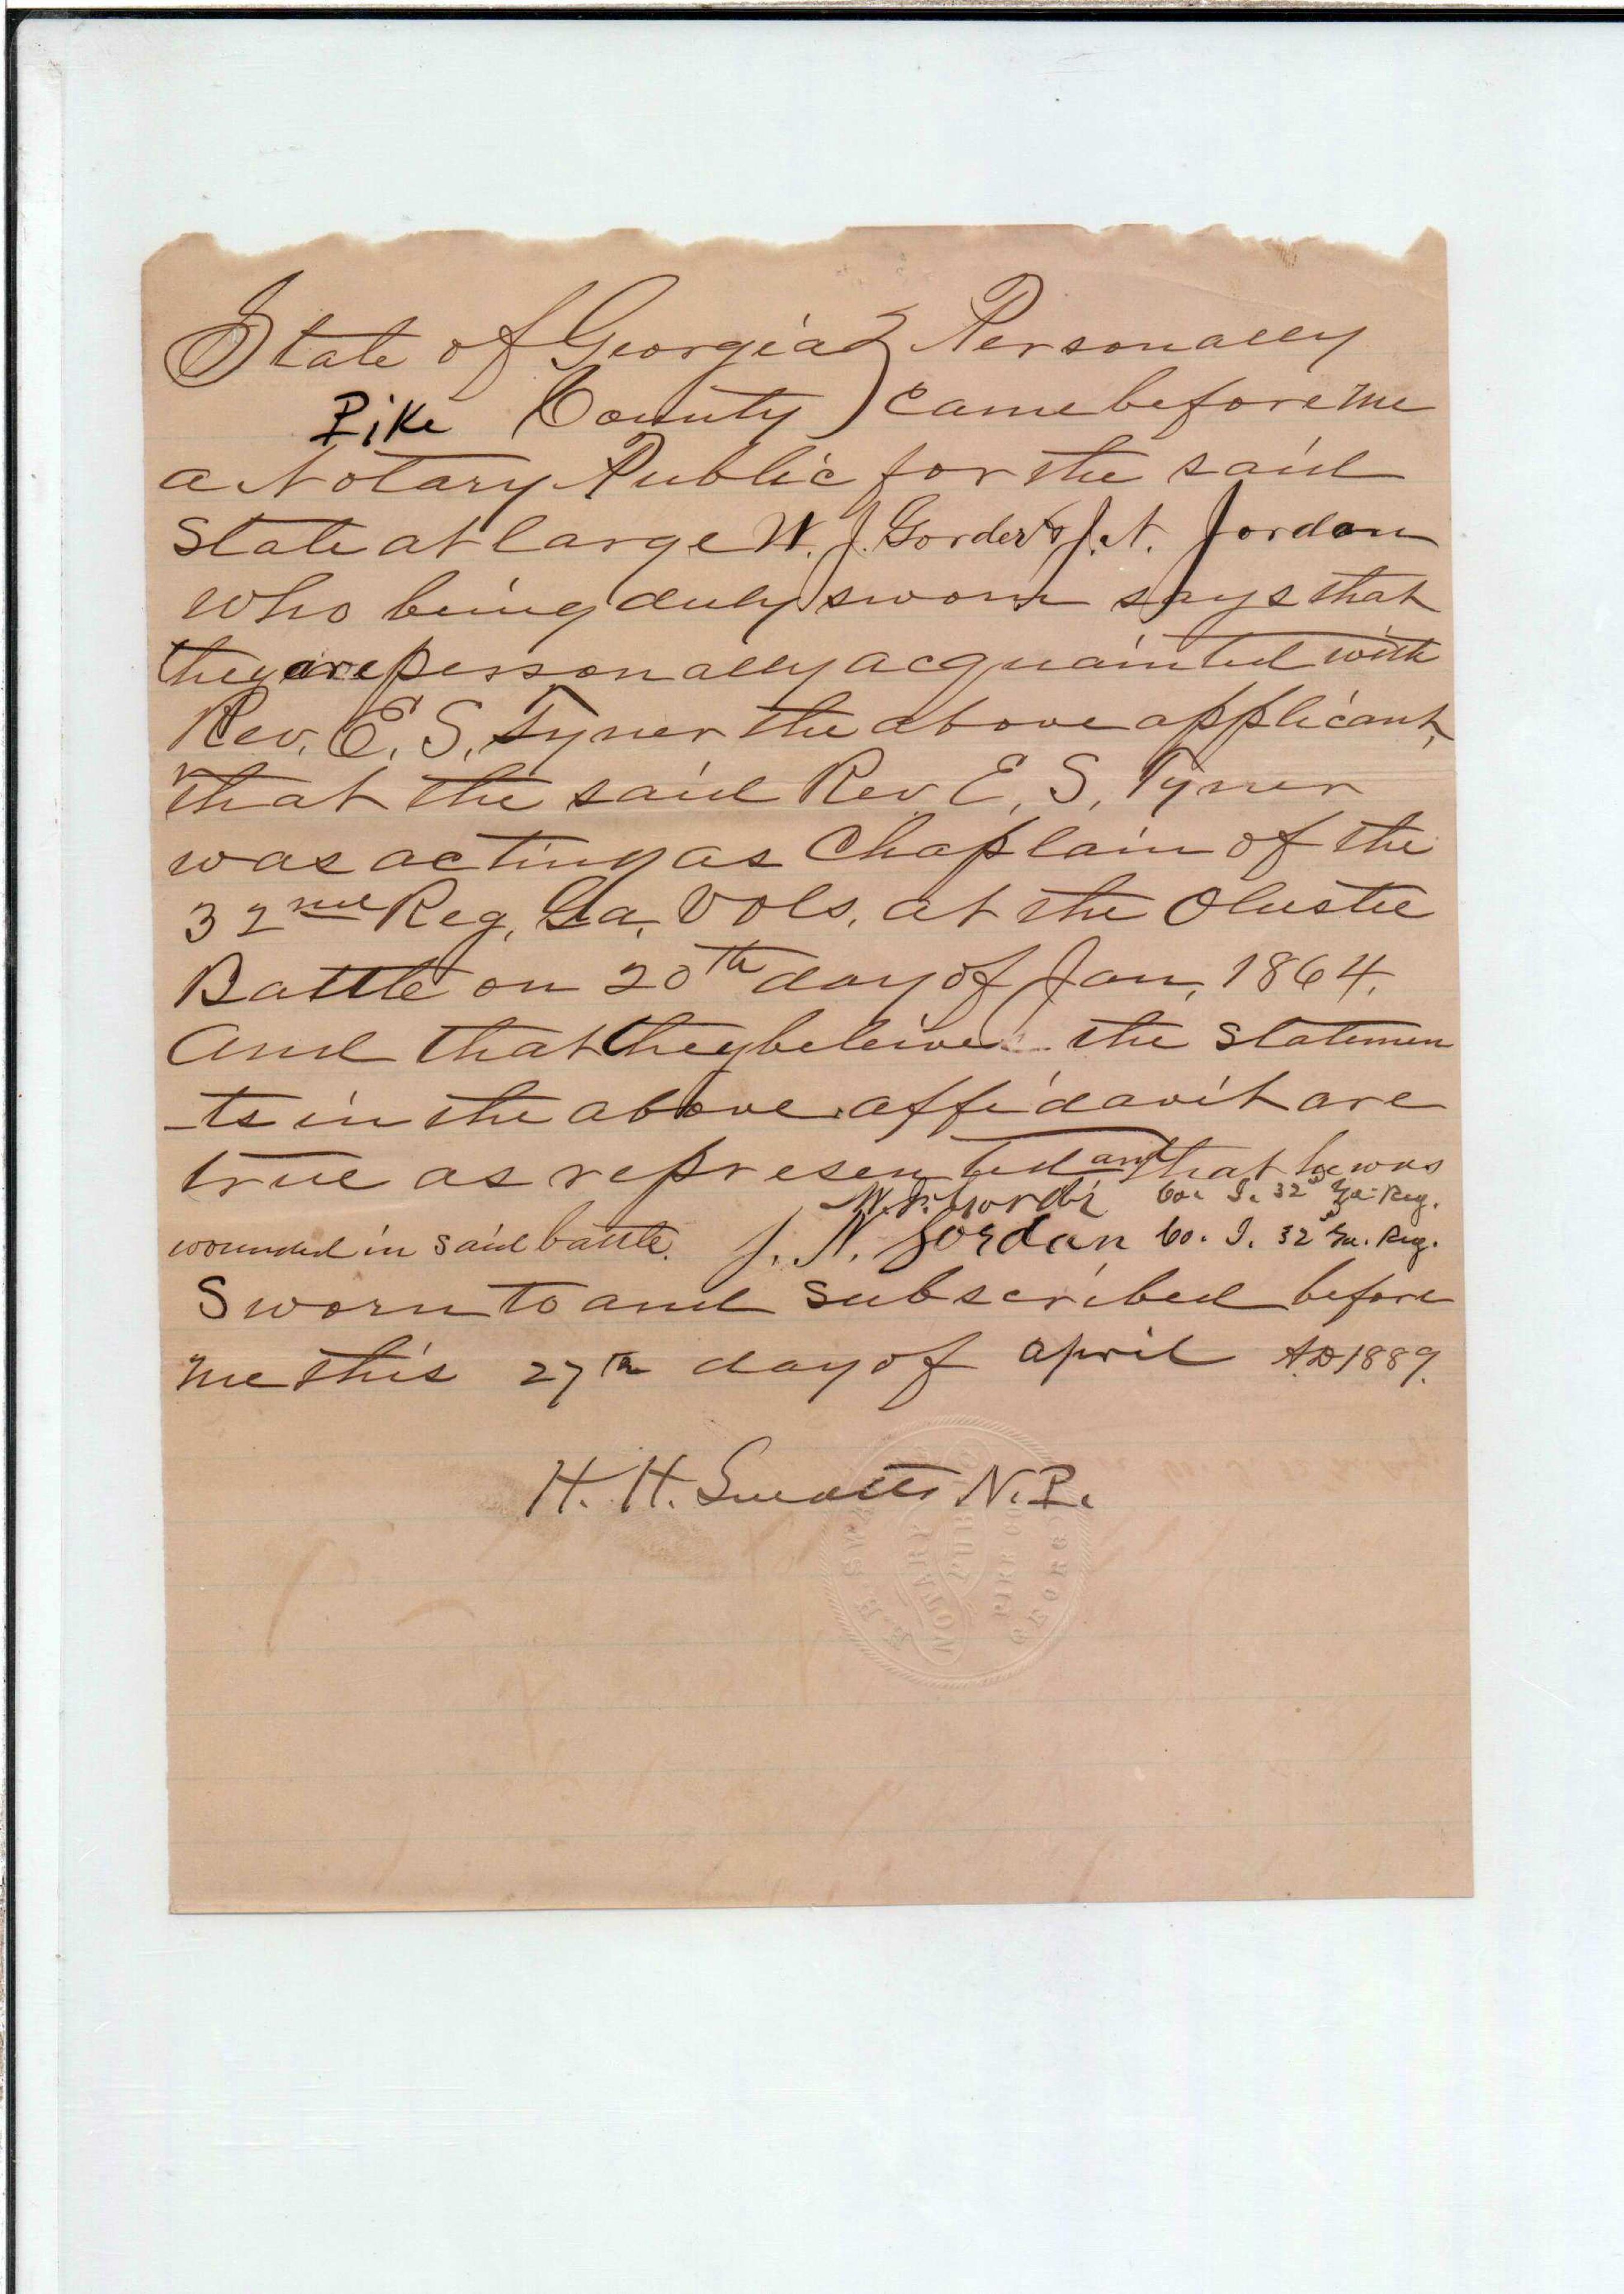 State of Georgia } Personally
Pike County } came before me
a Notary Public for the said
State at large W. J. Gorder & J. N. Jordan
who being duly sworn says that
they are personally acquainted with
Rev. E. S. Tyner the above applicant,
that the said Rev E. S. Tyner
was acting as Chaplain of the
32nd Reg. Ga. Vols. at the Olustee
Battle on 20th day of Jan, 1864.
And that they beleive the statemen
-ts in the above affidavit are
true as represented and that he was
W. J. Co. I. 32d Ga. Reg.
wounded in said battle. J. N. Jordan Co. I. 32d Ga. Reg.
Sworn to and subscribed before
me this 27th day of april A.D 1889.
H. H. N.P.
NOTARY PUBLIC
PIKE CO
GEORG